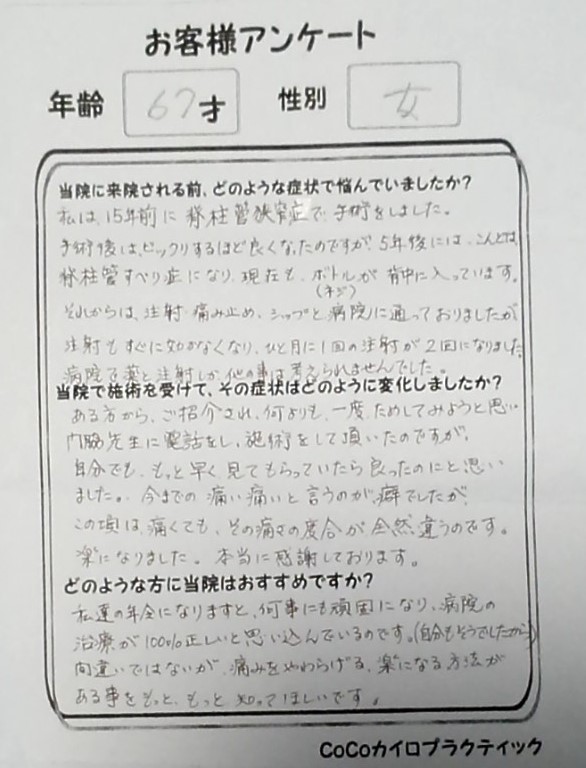 お客様アンケート
年齢 67才 性別 女
当院に来院される前、どのような症状で悩んでいましたか?
私は、15年前に脊柱管狭窄症で、手術をしました。
手術後は、ビックリするほど良くなったのですが、5年後には、こんどは、
脊柱管すべり症になり、現在も、ボトルが背中に入っています。
(ネジ)
それからは、注射、痛み止め、シップと病院に通っておりましたが
注射もすぐに効かなくなり、ひと月に1回の注射が2回になりました。
病院で薬と注射しか、他の事は考えられませんでした。
当院で施術を受けて、その症状はどのように変化しましたか?
ある方から、ご紹介され、何よりも、一度、ためしてみようと思い
門脇先生に電話をし、施術をして頂いたのですが、
自分でも、もっと早く見てもらっていたら良ったのにと思い
ました。今までの痛い痛いと言うのが、癖でしたが、
この頃は、痛くても、その痛さの度合が全然違うのです。
楽になりました。本当に感謝しております。
どのような方に当院はおすすめですか?
私達の年令になりますと、何事にも頑固になり、病院の
治療が100%正しいと思い込んでいるのです。(自分もそうでしたから)
間違いではないが、痛みをやわらげる、楽になる方法が
ある事をもっと、もっと知ってほしいです。
CoCoカイロプラクティック